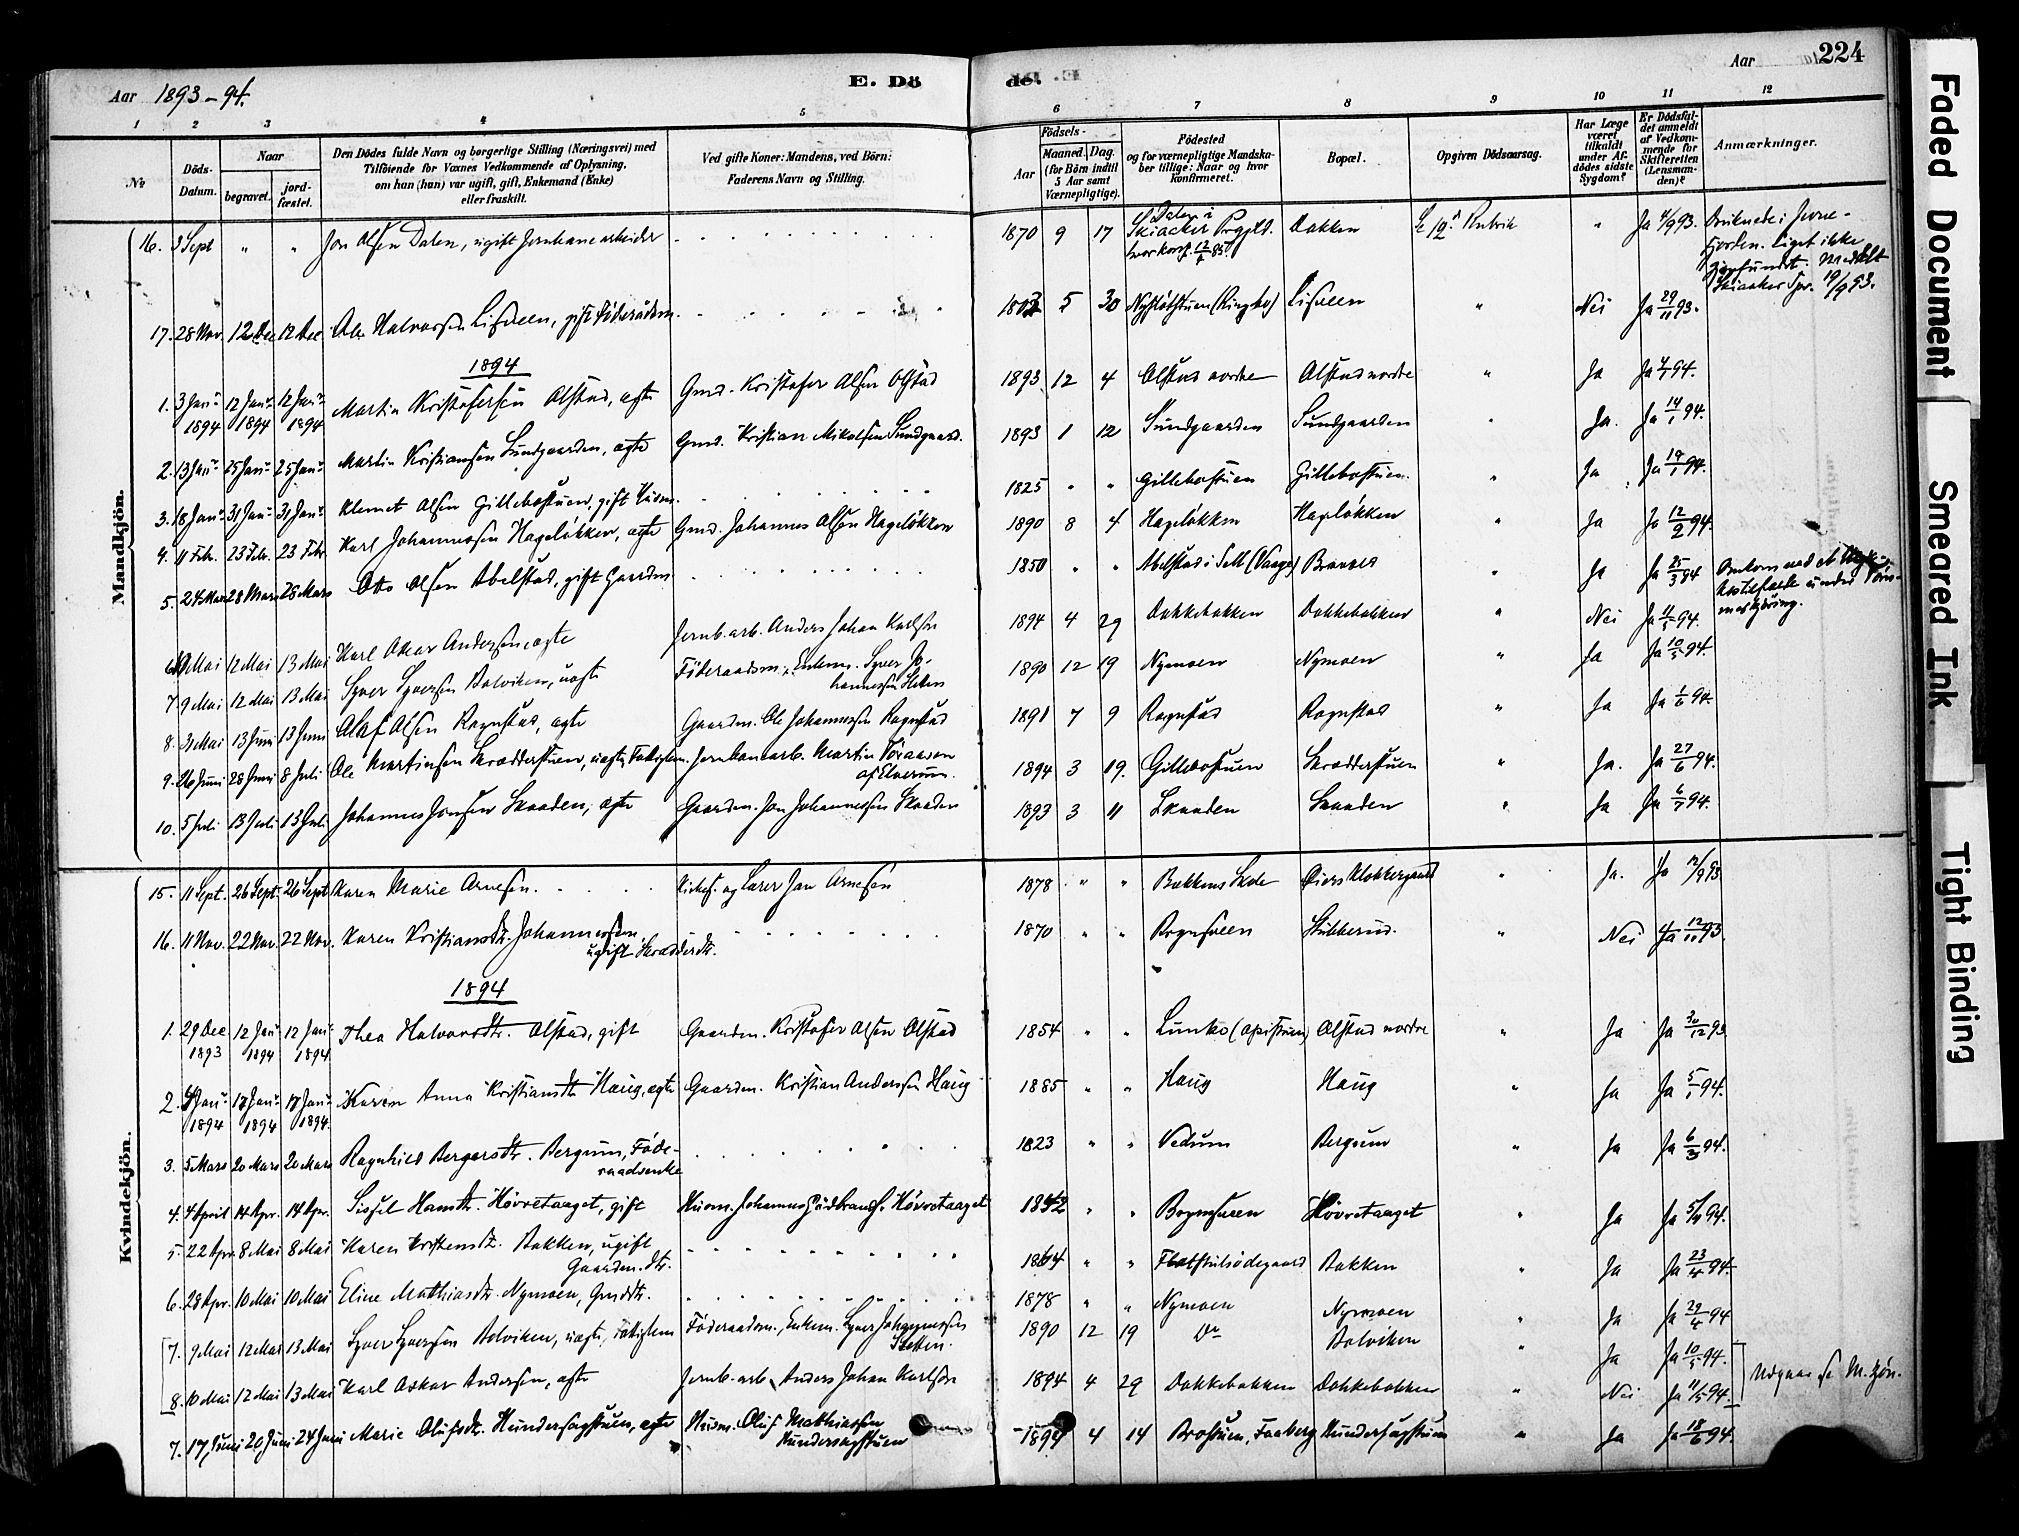 Aar 1893-94.
E. Dö
de.
Aar
224
1 2 3 4 5 6 7 8 9 10 11 12
No
Döds-Datum.
Naar
begravet.
jord-fæstet.
Den Dödes fulde Navn og borgerlige Stilling (Næringsvei) med
Tilföiende for Voxnes Vedkommende af Oplysning,
om han (hun) var ugift, gift, Enkemand (Enke)
eller fraskilt.
Ved gifte Koner: Mandens, ved Börn:
Faderens Navn og Stilling.
Födsels-
Aar
Maaned. Dag.
(for Börn indtil
5 Aar samt
Værnepligtige).
Födested
og for værnepligtige Mandska-
ber tillige: Naar og hvor
konfirmeret.
Bopæl.
Opgiven Dödsaarsag.
Har Læge
været
tilkaldt
under Af-
dödes sidste
Sygdom?
Er Dödsfal-
det anmeldt
af Vedkom-
mende for
Skifteretten
(Lensman-
den)?
Anmærkninger.
Mandkjön.
16. 3 Sept " " Jon Olsen Dalen, ugift Jernbanearbeider 1870 9 17 Dalen i Skiacker Prgjld. Bakken Rubrik " Ja 4/9 93.
17. 28 Nov. 12 Dec 12 Dec Ole Halvorsen Lisveen, gift Föderaadsm. 5 30 Lisveen " Nei Ja 29/11 93.
1894
1. 3 Jan. 1894 12 Jan. 1894 12 Jan. 1894 Martin Kristofersen Olstad, ægte Gmd. Kristofer Olsen Olstad 1893 12 4 Olstad nordre Olstad nordre " Ja Ja 94.
2. 13 Jan. 25 Jan. 25 Jan. Martin Kristiansen Sundgaarden, ægte Gmd. Kristian Mikalsen Sundgaard. 1893 1 12 Sundgaarden Sundgaarden " Ja. Ja 14/1 94.
3. 18 Jan. 31 Jan. 31 Jan. Klemet Olsen Gillebostuen, gift Husm. 1825 " " Gillebostuen Gillebostuen. " Ja Ja 19/1 94.
4. 11 Feb. 23 Feb. 23 Feb. Karl Johannessen Hageløkken, ægte Gmd. Johannes Olsen Hageløkken 1890 8 4 Hageløkken Hageløkken " Ja Ja 12/2 94.
5. 24 Mars 28 Mars 28 Mars Otto Olsen Abelstad, gift Gaardm. 1850 " " Abelstad i Sell (Vaage) " Ja Ja 25/3 94
6. 10 Mai 12 Mai 13 Mai Karl Oskar Andersen, ægte Jernb. arb. Anders Johan Karlsson 1894 4 29 Dakkebakken Dakkebakken " Nei Ja 11/5 94.
7. 9 Mai 12 Mai 13 Mai Syver Syversen Bolviken, uægte Föderaadsm., Enkem. Syver Jo-
hannessen Sletten 1890 12 19 Nymoen Nymoen " Ja Ja 10/5 94.
8. 31 Mai 13 Juni 13 Juni Olaf Olsen Rognstad, ægte Gaardm. Ole Johannessen Rognstad 1891 7 9 Rognstad Rognstad " Ja Ja 1/6 94.
9. 26 Juni 28 Juni 8 Juli Ole Martinsen Skrædderstuen, uægte, Fattiglem. Jernbanearb. Martin
af Elverum. 1894 3 19. Gillebostuen Skrædderstuen " Ja. Ja 27/6 94.
10. 5 Juli 13 Juli 13 Juli Johannes Jonsen Skaaden, ægte Gaardm. Jon Johannessen Skaaden 1893 3 11 Skaaden Skaaden " Ja Ja 6/7 94.
Kvindekjön.
15. 11 Sept. 26 Sept. 26 Sept Karen Marie Arnesen. Kirkes. og Lærer Jan Arnesen 1878 " " Bakkens Skole Öiers Klokkergaard " Ja. Ja 12/9 93
16. 11 Nov. 22 Nov. 22 Nov. Karen Kristiansdtr. Johannessen
ugift Skrædderdtr. 1870 " " Rognsveen Stubberud. " Nei Ja 12/11 93.
1894
1. 29 Dec 1893 12 Jan. 1894 12 Jan. 1894 Thea Halvorsdtr. Olstad, gift Gaardm. Kristofer Olsen Olstad 1854 " " Olstad nordre " Ja Ja 30/12 93
2. 4 Jan. 1894 17 Jan. 1894 17 Jan. 1894. Karen Anna Kristiansdtr Haug, ægte Gaardm. Kristian Anderssen Haug 1885 " " Haug Haug " Ja Ja 5/1 94.
3. 5 Mars 20 Mars 20 Mars Ragnhild Bergersdtr. Bergum, Föde-
raadsenke 1823 " " Vedum Bergum " Ja Ja 6/3 94.
4. 4 April 14 Apr. 14 Apr. Sissel Hansdtr. Hövretaaget, gift Husm. Johannes Gudbrands. Hövretaaget 1842 " " Rognsveen Hövretaaget " Ja Ja 5/4 94.
5. 22 Apr 8 Mai 8 Mai Karen Kristensdtr. Bakken, ugift
Gaardm. dtr. 1864 " " Bakken " Ja Ja 23/4 94.
6. 28 Apr. 10 Mai 10 Mai Eline Mathiasdtr. Nymoen, Gmdsdtr. 1878 " " Nymoen Nymoen " Ja Ja 29/4 94
7. 9 Mai 12 Mai 13 Mai Syver Syversen Bolviken, uægte, Fattiglem Föderaadsm., Enkem. Syver Johannessen
Sletten. 1890 12 19 Do Bolviken " Ja Ja 10/5 94.
8. 10 Mai 12 Mai 13 Mai Karl Oskar Andersen, ægte Jernb. arb. Anders Johan Karlsson 1894 4 29 Dakkebakken Dakkebakken " Nei Ja 11/5 94.
Udgaar se M. kjön.
7. 17 Juni 20 Juni 24 Juni Marie Olufsdtr. Hundersagstuen, ægte Husm. Oluf Mathiassen
Hundersagstuen 1894 4 14 Brostuen, Faaberg Hundersagstuen " Ja Ja 18/6 94.
Faded Document
Smeared Ink
Tight Binding